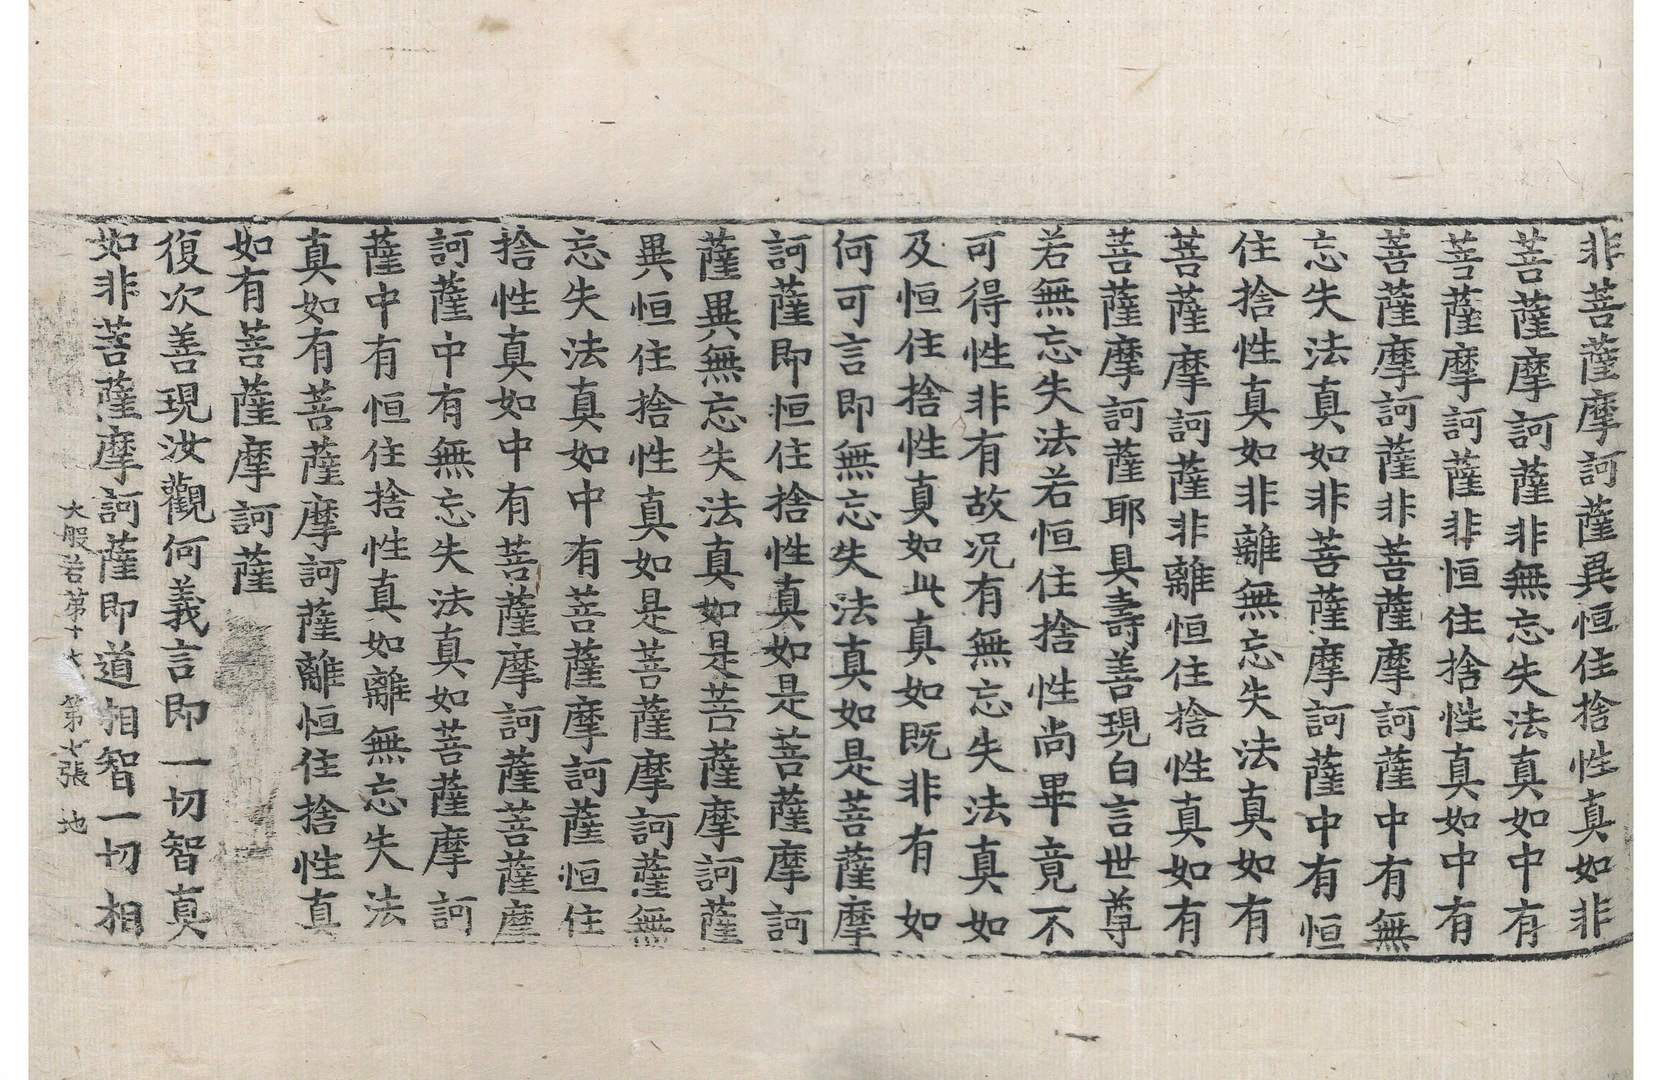 非菩薩摩訶薩異恒住捨性真如非
菩薩摩訶薩非無忘失法真如中有
菩薩摩訶薩非恒住捨性真如中有
菩薩摩訶薩非菩薩摩訶薩中有無
忘失法真如非菩薩摩訶薩中有恒
住捨性真如非離無忘失法真如有
菩薩摩訶薩非離恒住捨性真如有
菩薩摩訶薩耶具壽善現白言世尊
若無忘失法若恒住捨性尚畢竟不
可得性非有故况有無忘失法真如
及恒住捨性真如此真如既非有如
何可言即無忘失法真如是菩薩摩
訶薩即恒住捨性真如是菩薩摩訶
薩異無忘失法真如是菩薩摩訶薩
異恒住捨性真如是菩薩摩訶薩無
忘失法真如中有菩薩摩訶薩恒住
捨性真如中有菩薩摩訶薩菩薩摩
訶薩中有無忘失法真如菩薩摩訶
薩中有恒住捨性真如離無忘失法
真如有菩薩摩訶薩離恒住捨性真
如有菩薩摩訶薩
復次善現汝觀何義言即一切智真
如非菩薩摩訶薩即道相智一切相
大般若第十六 第七張 地